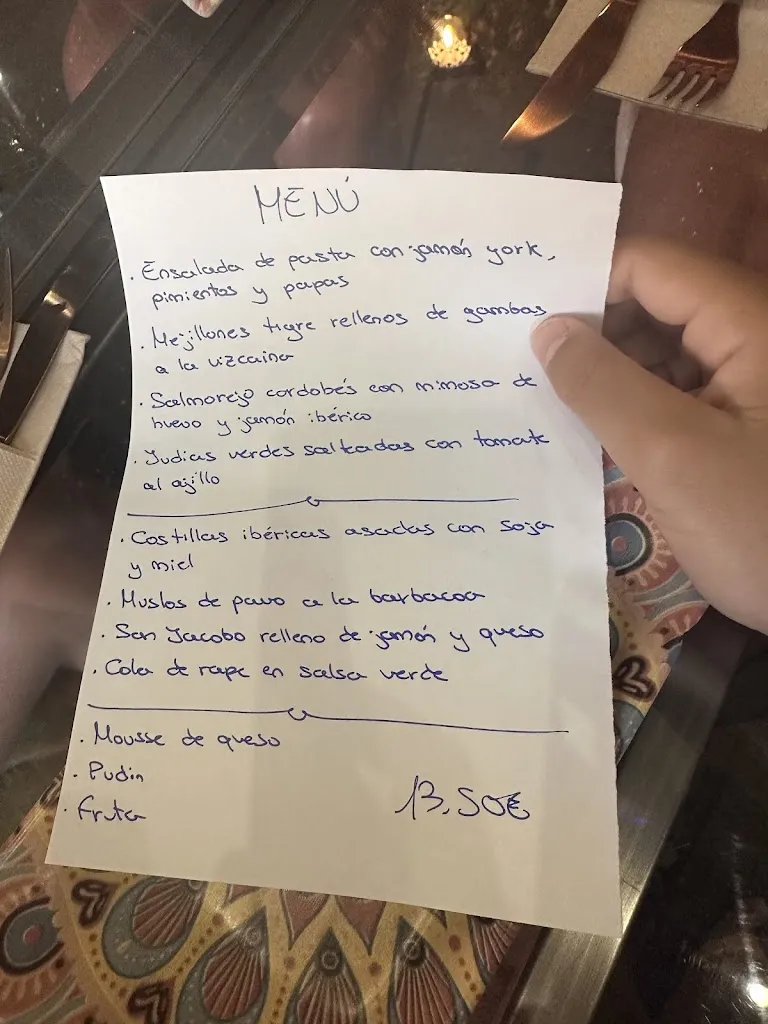 MENÚ
. Ensalada de pasta con jamón york,
pimientos y papas
. Mejillones tigre rellenos de gambas
a la vizcaina
. Salmorejo cordobés con mimosa de
huevo y jamón ibérico
. Judias verdes salteadas con tomate
al ajillo
. Costillas ibéricas asadas con soja
y miel
. Muslos de pavo a la barbacoa
. San Jacobo relleno de jamón y queso
. Cola de rape en salsa verde
. Mousse de queso
. Pudin
. Fruta
13,50€